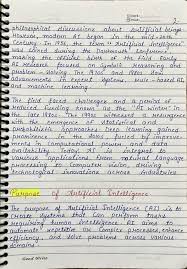 2
philosophical discussions about artificial beings
However, modern AI began in the mid-20th
Century. In 1956, the term "Artificial Intelligence"
was coined during the Dartmouth Conference
making the official birth of the field. Early
AI research focused on symbolic reasoning and
problem solving. The 1970s and 1980s saw
advancements in expert systems, rule-based AI,
and machine learning
The field faced challenges and a period of
reduced funding known as the "AI winter" in
the late 1980s. The 1990s witnessed a resurgence
with the emergence of statistical and
probabilistic approaches. Deep learning gained
prominence in the 2010s, fueled by
improvements in computational power and data
availability. Today, AI is integral to
various applications from natural language
processing to computer vision, driving
technological innovations across industries
Purpose of Artificial Intelligence
The purpose of Artificial Intelligence (AI) is to
create systems that can perform tasks
requiring human intelligence. AI aims to
automate repetitive or complex processes, enhance
efficiency, and solve problems across various
domains